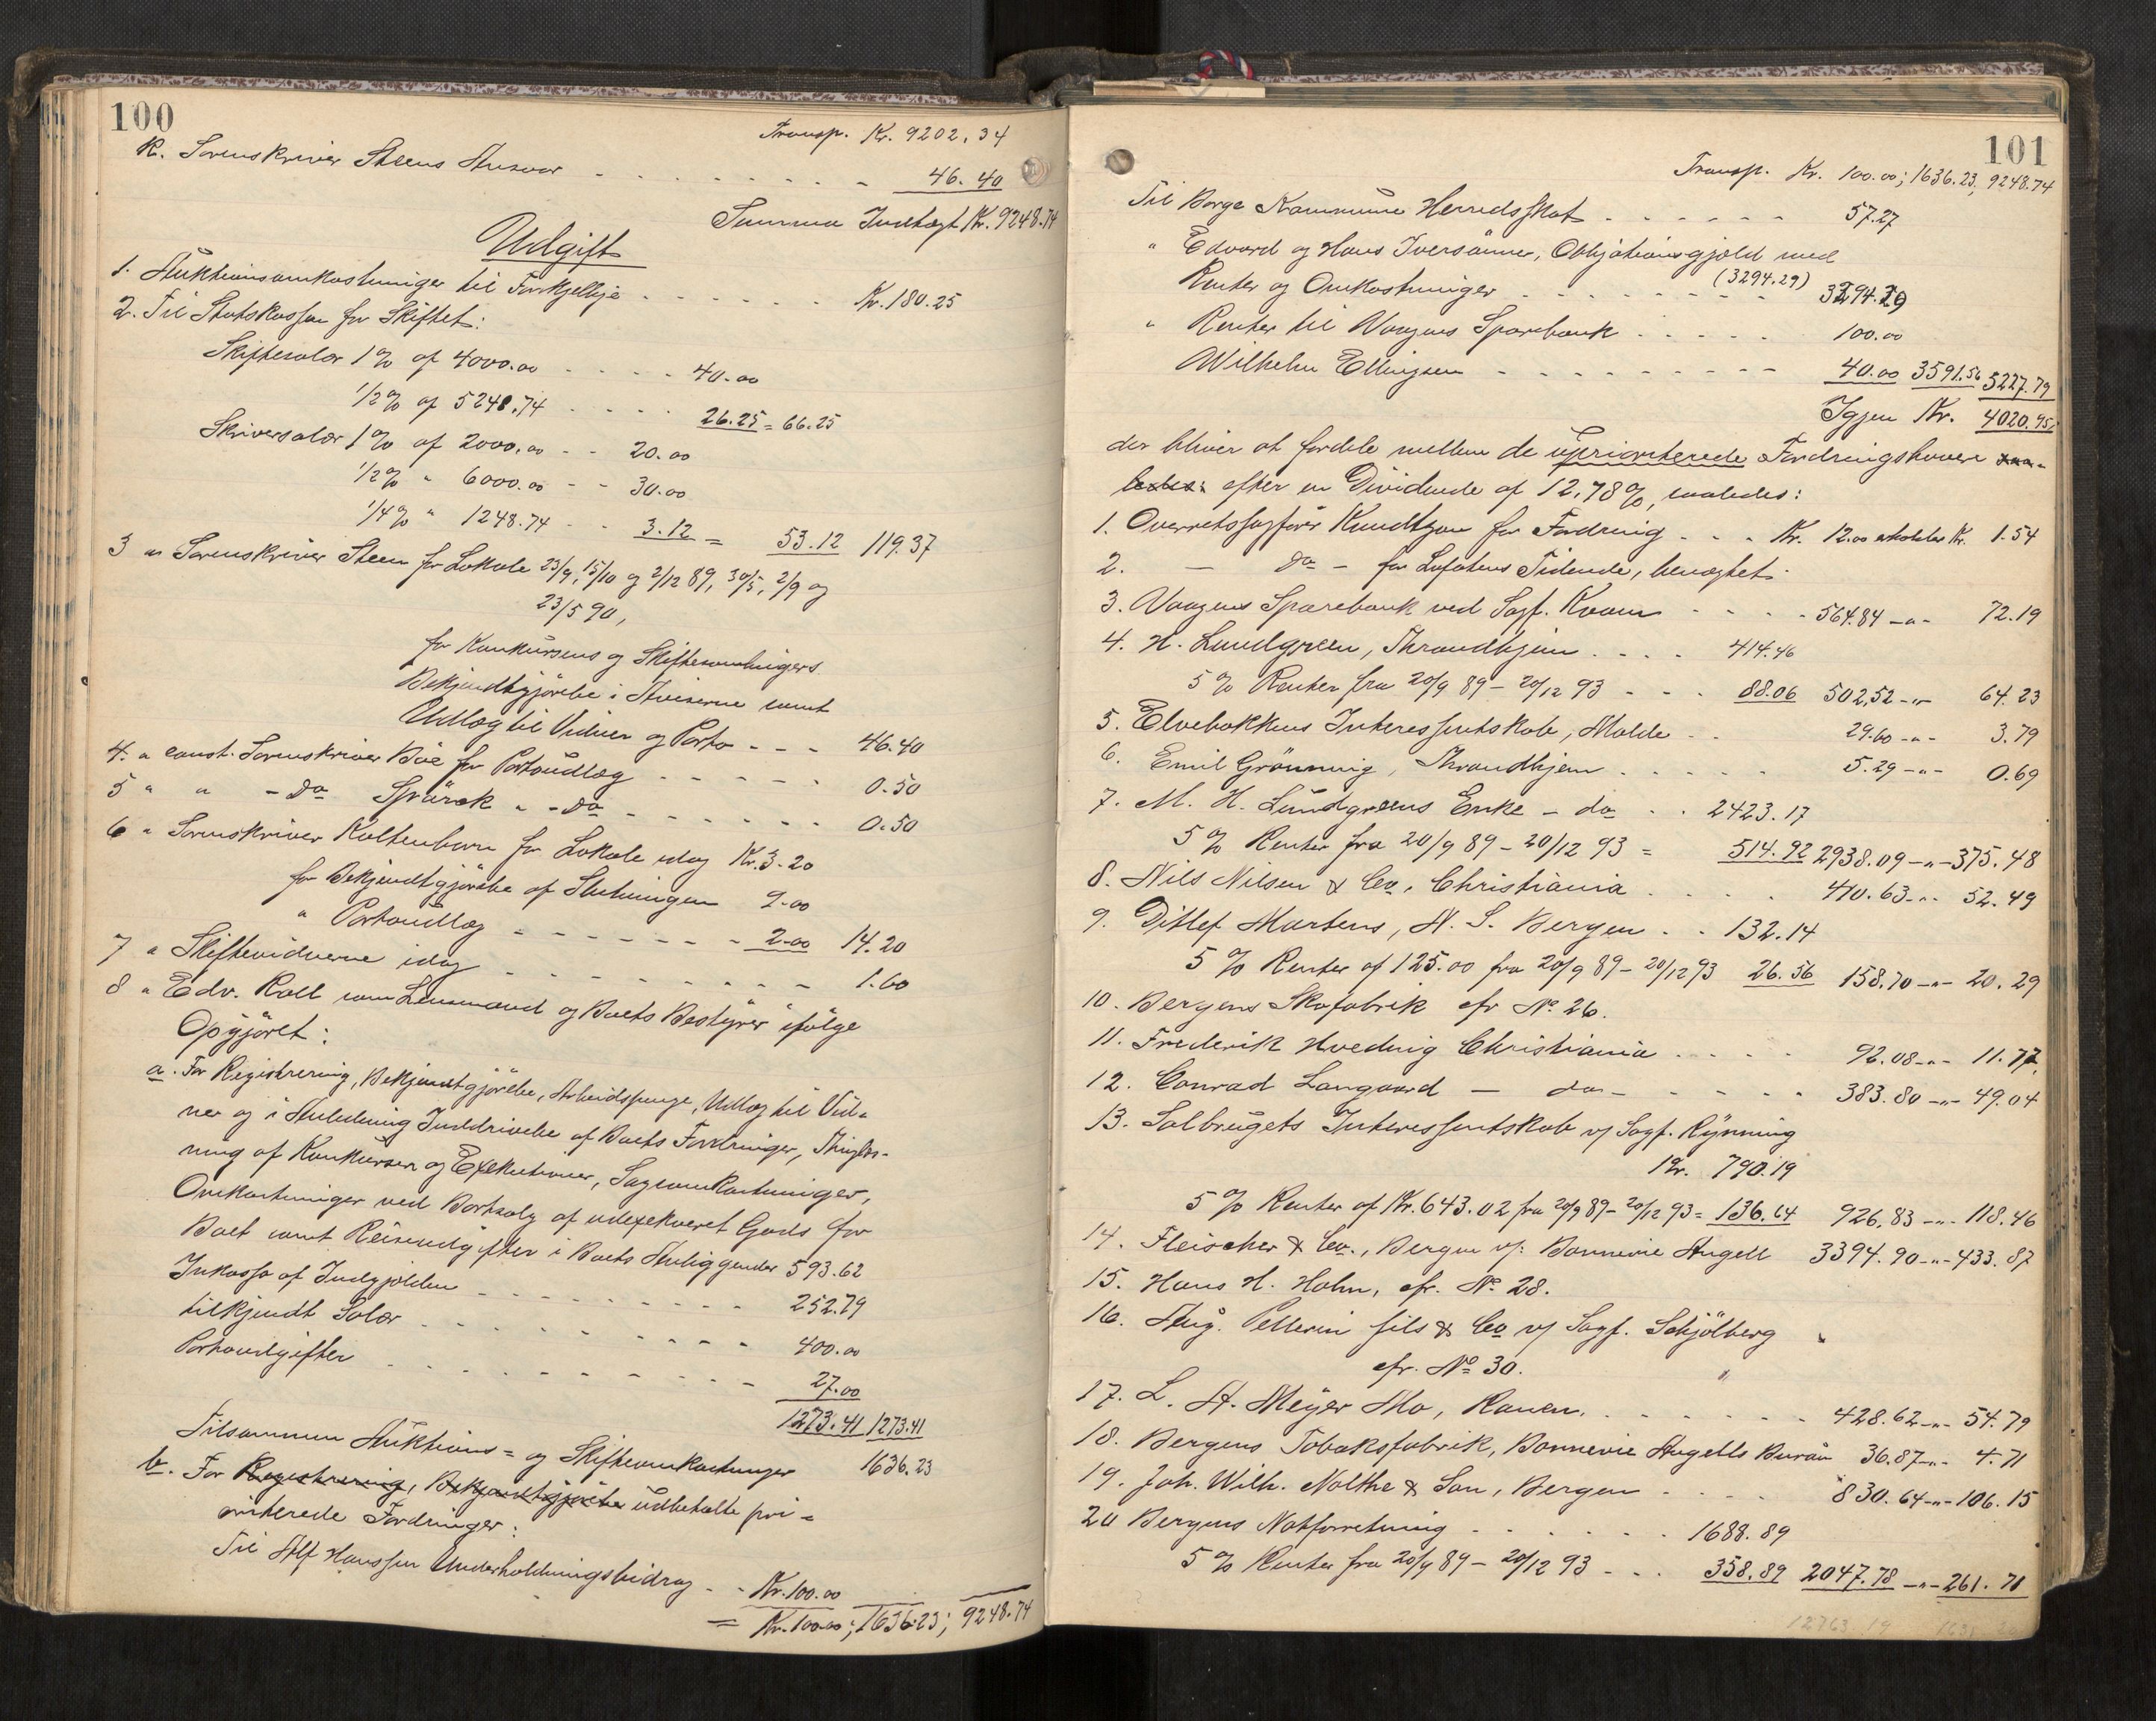 100
Transp. Kr. 9202,34
k. Sorenskriver Steens Ansvar - - - - - - 46.40
Summa Indtægt Kr. 9248.74
Udgift
1. Auktionsomkostninger til Forkjellige - - - - - Kr. 180.25
2. Til Statskassen for Skiftet:
Skiftesalær 1% af 4000.00 - - - - 40.00
1/2% af 5248.74 - - - - 26.25 = 66.25
Skriversalær 1% af 2000.00 - - 20.00
1/2% " 6000.00 - - 30.00
1/4% " 1248.74 - - 3.12 = 53.12 119.37
3 " Sorenskriver Steen for Lokale 23/9, 15/10 og 2/12 89, 30/5, 2/9 og
23/5 90,
for Konkursens og Skiftesamlingers
Bekjendtgjörelse i Aviserne samt
Udlæg til Vidner og Porto - - - 46.40
4. " const. Sorenskriver Böe for Portoudlæg - - - - - 0.50
5 " " - do Spärck " - do - - - - - 0.50
6 " Sorenskriver Koltenborn for Lokale idag Kr. 3.20
for Bekjendtgjörelse af Slutningen 9.00
" Portoudlæg - - - - - - 2.00 14.20
7 " Skiftevidnerne idag - - - - - - - - 1.60
8 " Edv. Roll som Lensmand og Boets Bestyrer ifölge
Opgjöret:
a. For Registrering, Bekjendtgjörelse, Arbeidspenge, Udlæg til Vid-
ner og i Anledning Inddrivelse af Boets Fordringer, Thinglæs-
ning af Konkursen og Exekutioner, Sagsomkostninger,
Omkostninger ved Bortsalg af udexekveret Gods for
Boet samt Reiseudgifter i Boets Anliggender 593.62
Inkasso af Indgjælden - - - - - - - - 252.79
tilkjendt Salær - - - - - - - - - 400.00
Portoudgifter - - - - - - - - 27.00
1273.41 1273.41
Tilsammen Auktions- og Skifteomkostninger 1636.23
b. For Registrering, Bekjendtgjörelse udbetalte pri-
oriterede Fordringer:
Til Alf Hanssen Underholdningsbidrag - - Kr. 100.00
= Kr. 100.00; 1636.23; 9248.74
101
Transp. Kr. 100.00; 1636.23, 9248.74
Til Borge Kommune Herredsskat - - - - - - 57.27
" Edvard og Hans Iversönner, Obligationsgjæld med
Renter og Omkostninger - - - - (3294.29) 3294.29
" Renter til Vaagens Sparebank - - - - - 100.00
Wilhelm Ellingsen - - - - - - - - - 40.00 3591.56 5227.79
Igjen Kr. 4020.95
der bliver at fordele mellem de upriorterede Fordringshavere saa-
ledes: efter en Dividende af 12,78%, saaledes:
1. Overretssagförer Knudtzon for Fordring - - - Kr. 12.00 erholder Kr. 1.54
2. — do - for Lofotens Tidende, benægtet.
3. Vaagens Sparebank ved Sagf. Kvam - - - - 564.84 -"- 72.19
4. H. Lundgreen, Throndhjem - - - - 414.46
5% Renter fra 20/9 89 - 20/12 93 - - - 88.06 502,52 -"- 64.23
5. Elvebakkens Interessentskab, Molde - - 29.60 -"- 3.79
6. Emil Grönning, Throndhjem - - - - - 5.29 -"- 0.69
7. M. H. Lundgreens Enke - do - - 2423.17
5% Renter fra 20/9 89 - 20/12 93 = 514.92 2938.09 -"- 375.48
8. Nils Nilsen & Co. Christiania - - - - 410.63 -"- 52.49
9. Ditlef Martens, N. S. Bergen - - 132.14
5% Renter af 125.00 fra 20/9 89 - 20/12 93 26.56 158.70 -"- 20.29
10. Bergens Skofabrik cfr No. 26.
11. Frederik Hvedning Christiania - - - - 92.08 -"- 11.77
12. Conrad Langaard - do - - - - - - 383.80 -"- 49.04
13. Solbrugets Interessentskab v/ Sagf. Rynning
Kr. 790.19
5% Renter af Kr. 643.02 fra 20/9 89 - 20/12 93 = 136.64 926.83 -"- 118.46
14. Fleischer & Co., Bergen v/: Bonnevie Angell 3394.90 -"- 433.87
15. Hans H. Holm, cfr. No. 28.
16. Aug. Pellerin fils & Co v/ Sagf. Schjölberg
cfr. No. 30.
17. L. A. Meyer Mo, Ranen - - - - - - - 428.62 -"- 54.79
18. Bergens Tobaksfabrik, Bonnevie Angells Buräu 36.87 -"- 4.71
19. Joh. Wilh. Nolthe & Son, Bergen - - - - 830.64 -"- 106.15
20 Bergens Notforretning - - - - - - 1688.89
5% Renter fra 20/9 89 - 20/12 93 - - - 358.89 2047.78 -"- 261.71
12763.19